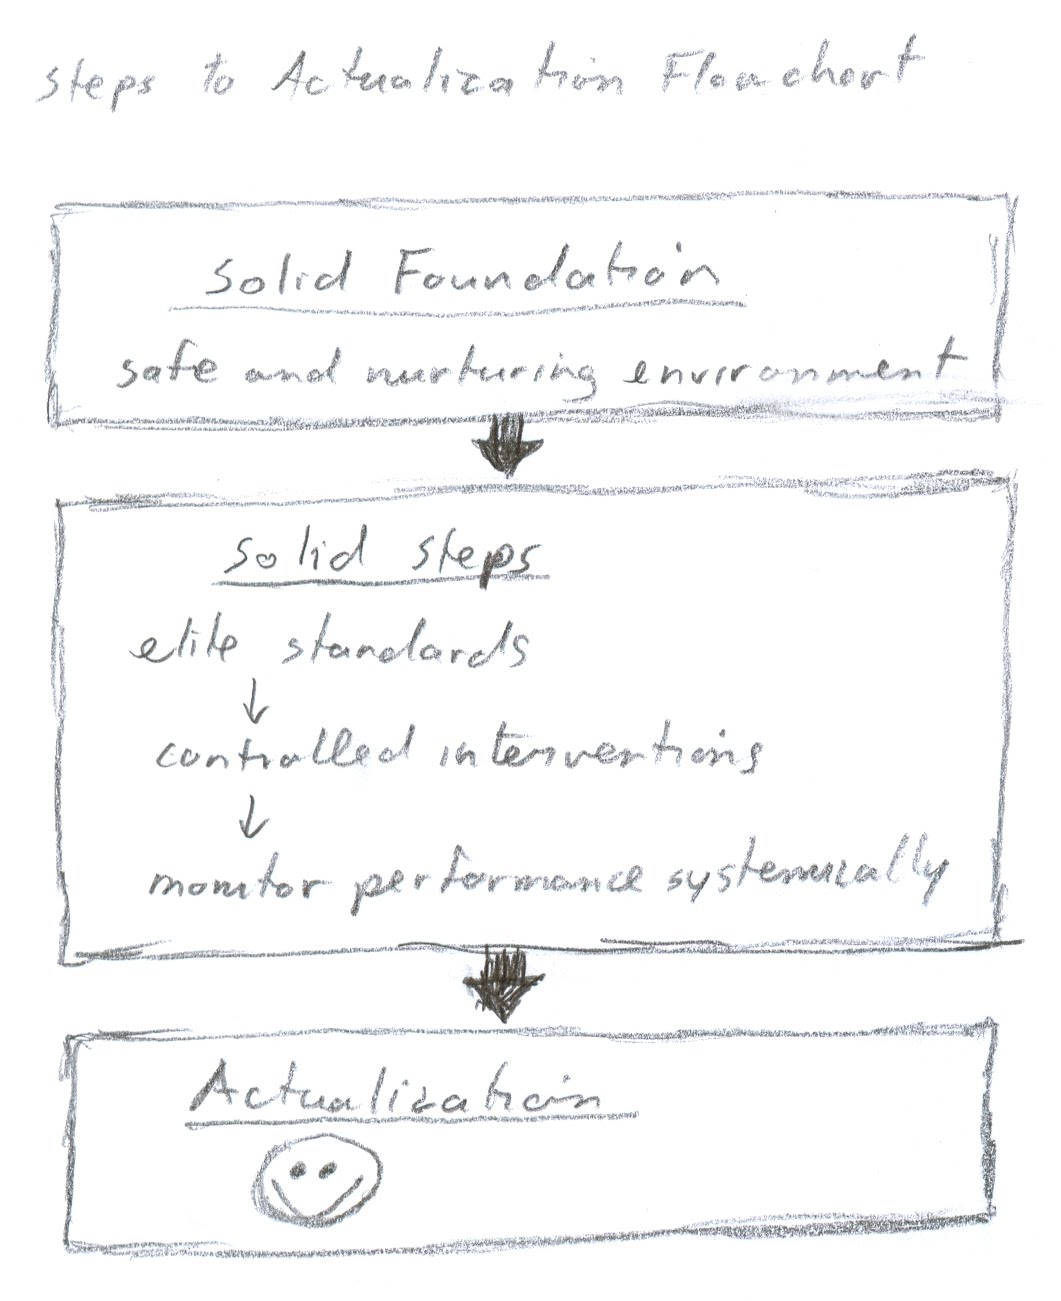 Steps to Actualization Flowchart
Solid Foundation
safe and nurturing environment
Solid steps
elite standards
controlled interventions
monitor performance systemically
Actualization